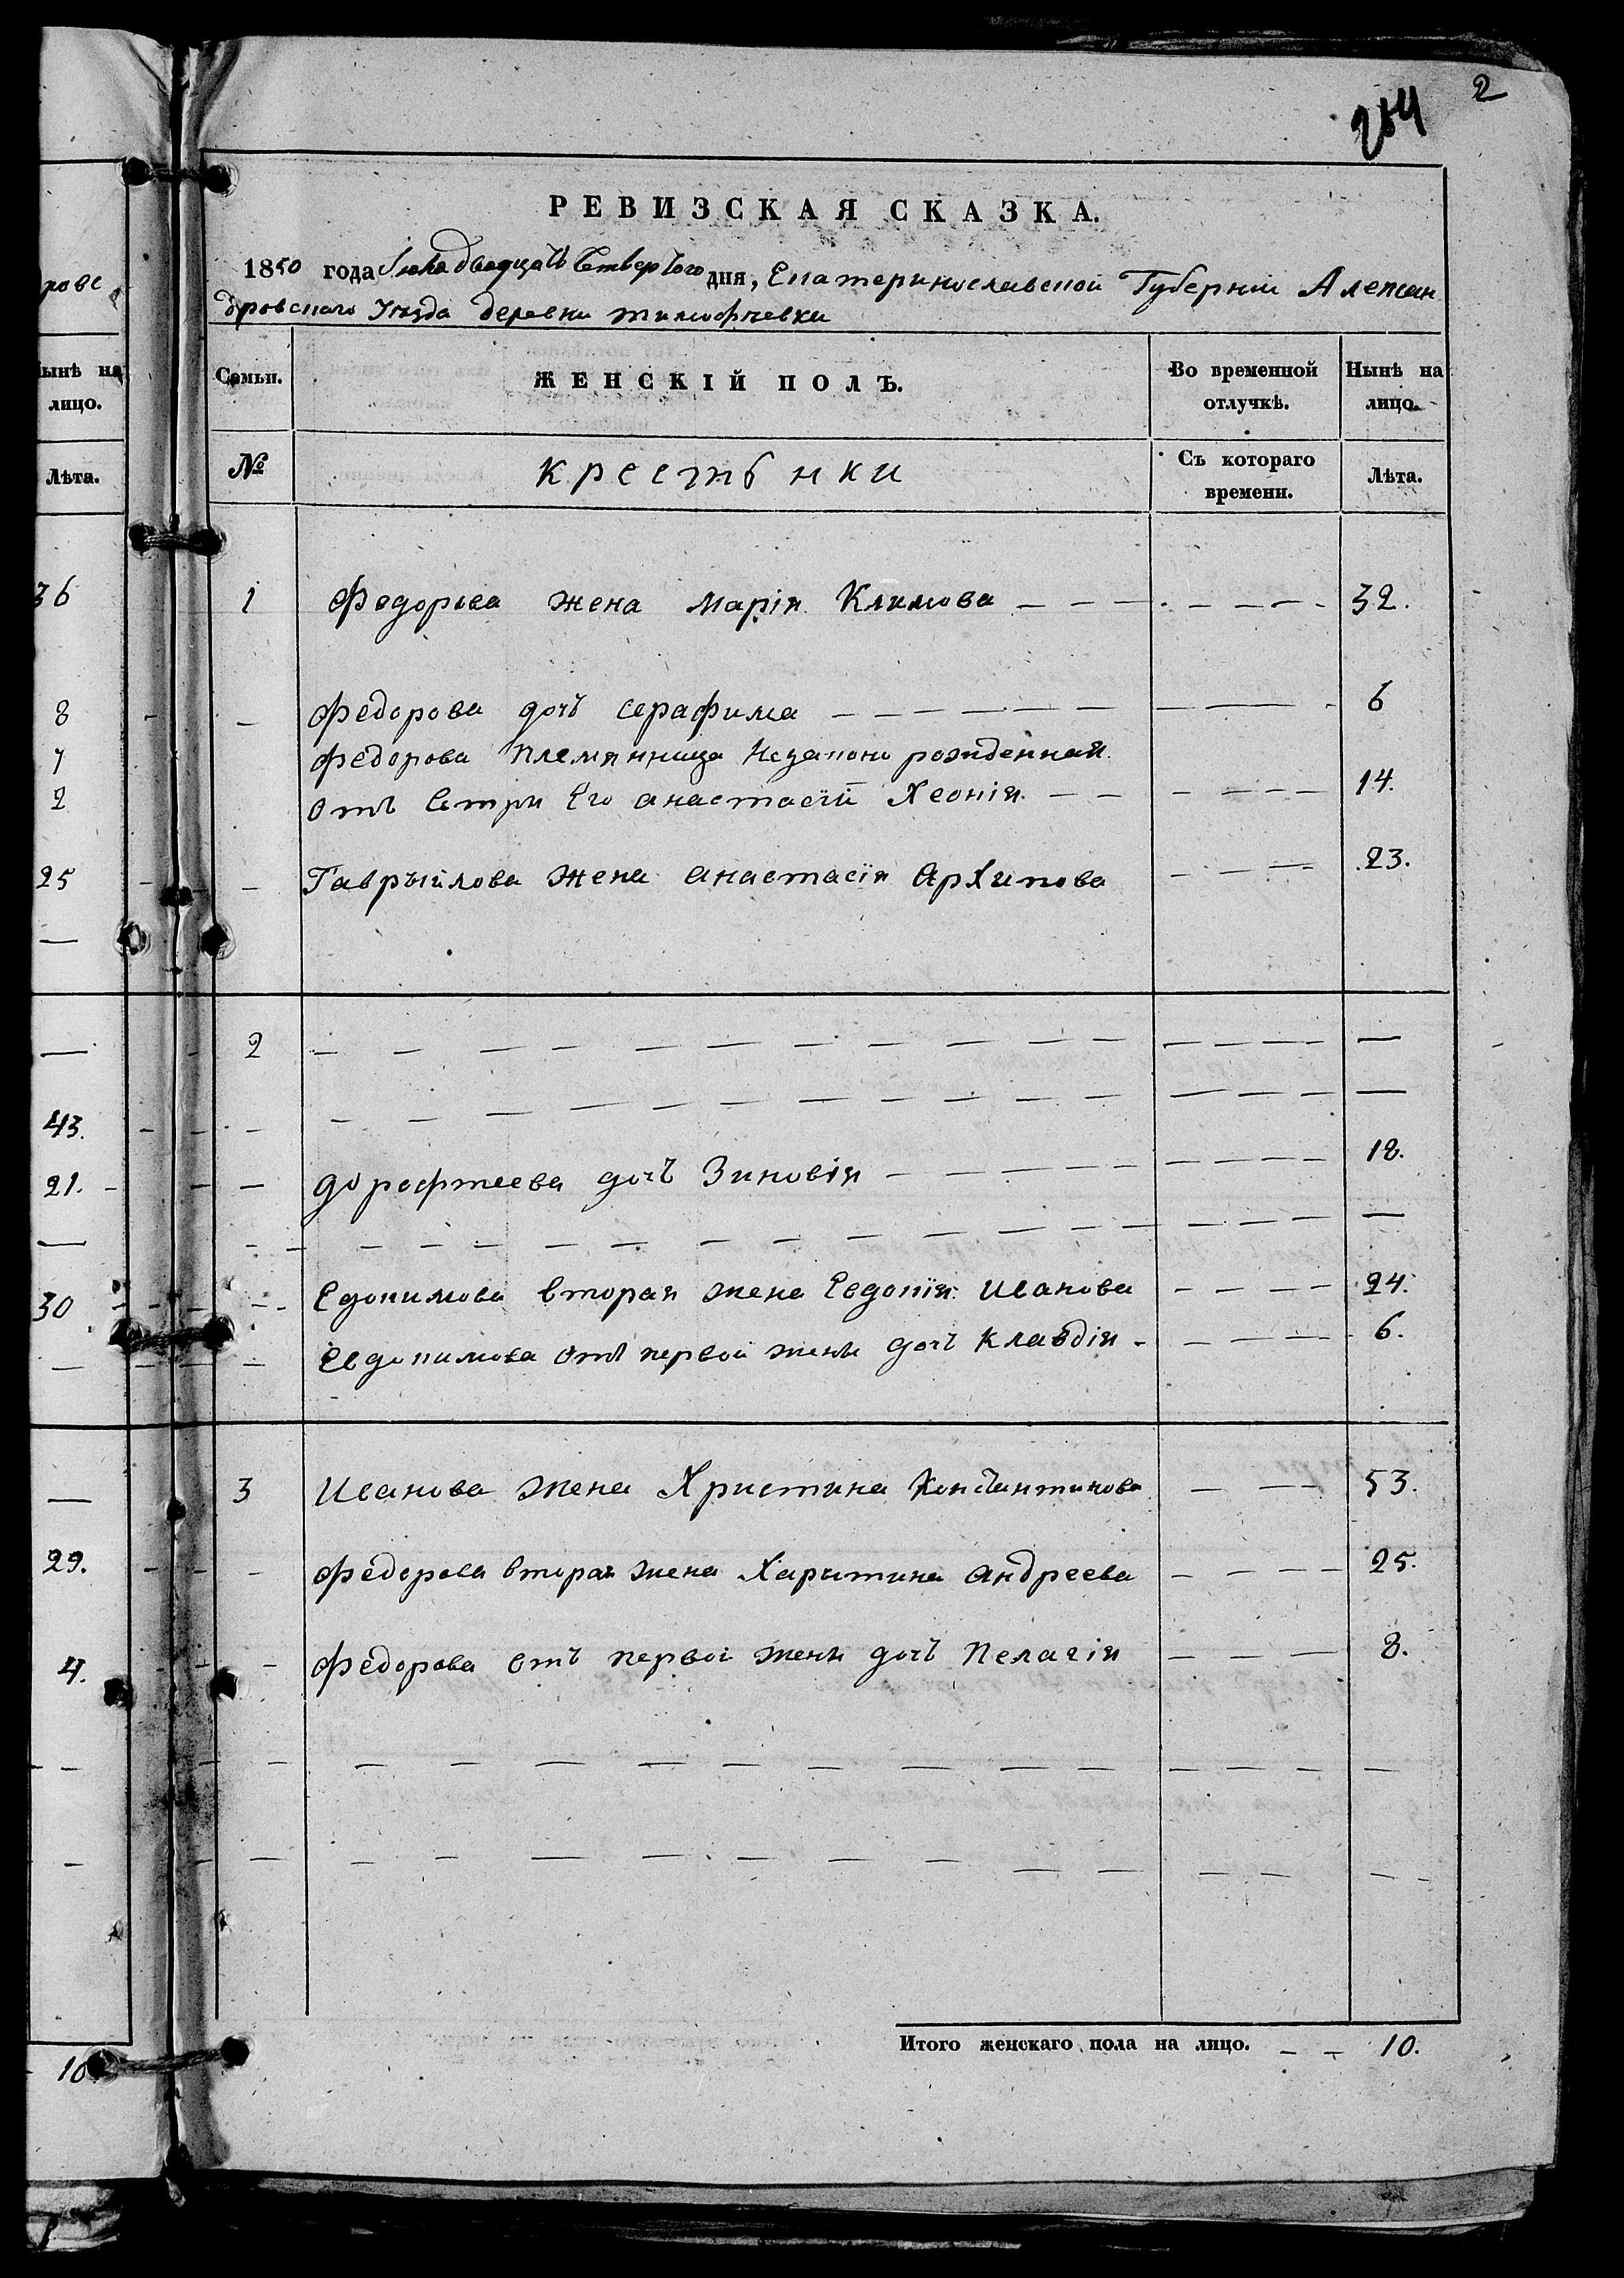 2
284
РЕВИЗСКАЯ СКАЗКА.
1850 года Іюня двадцать Четвертого дня, Екатеринославской Губерніи Алексан
дровского Уезда деревни тимофѣевки
ровс
ынѣ на лицо.
Семьи.
ЖЕНСКІЙ ПОЛЪ.
Во временной отлучкѣ.
Нынѣ на лицо.
Лѣта.
№
крестьянки
Съ котораго времени.
Лѣта.
36
1 Федорова жена Марія Климова — — — — — — — 32.
8 — федорова дочь серафима — — — — — — 6
7 федорова племянница Незаконо рожденная
2 отъ Сетри Его анастасіи Хеонія — — — — — — 14.
25 — Гаврыйлова жена анастасія Архипова — — — 23.
—
— 2 — — — — — — — — — — — —
43. — — — — — — — — — — — —
21. — дорофтеева дочь Зиновія — — — — — — 18.
— — — — — — — — — — — — —
30 — Едокимова вторая жена Евдокія Иванова — — — — 24.
— — Евдокимова отъ первой жены дочь клавдія — — — 6.
— 3 Иванова жена Христина Константинова — — 53.
29. — федорова вторая жена Харитина андреева — — — — 25.
4. — федорова отъ первой жены дочь Пелагія — — — 8.
— — — — — — — — — — — —
— — — — — — — — — — — —
10
Итого женскаго пола на лицо. — — 10.